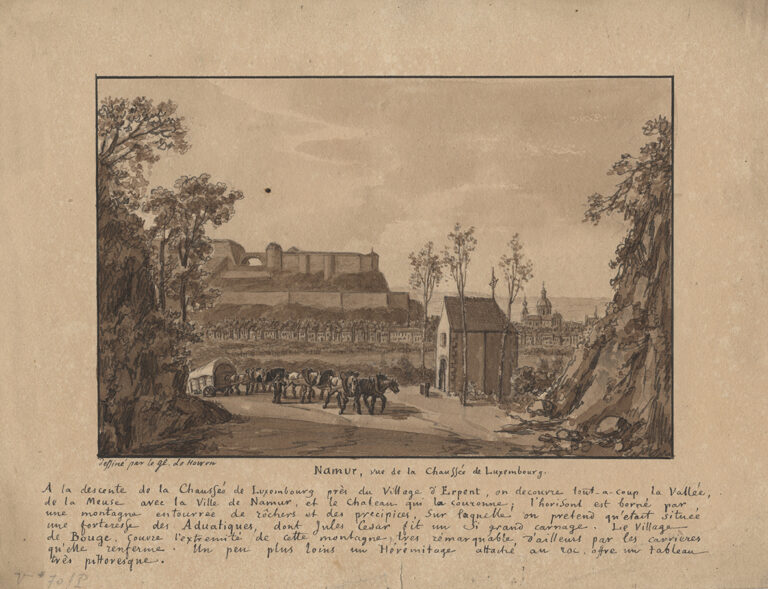 dessiné par le Gl. de Howen
Namur, vue de la Chaussée de Luxembourg.
A la descente de la Chaussée de Luxembourg près du Village d'Erpent, on decouvre tout-a-coup la Vallée,
de la Meuse avec la Ville de Namur, et le Chateau qui la couronne; l'horisont est borné par
une montagne entourrée de rochers et des precipices, Sur laquelle on pretend qu'etait située
une forteresse des Aduatiques, dont Jules Cesar fit un Si grand carnage. Le Village
de Bouge, couvre l'extremité de cette montagne, tres rémarquable, d'ailleurs par les carrières
qu'elle renferme. Un peu plus loins un Héremitage attaché au roc, ofre un tableau
très pittoresque.